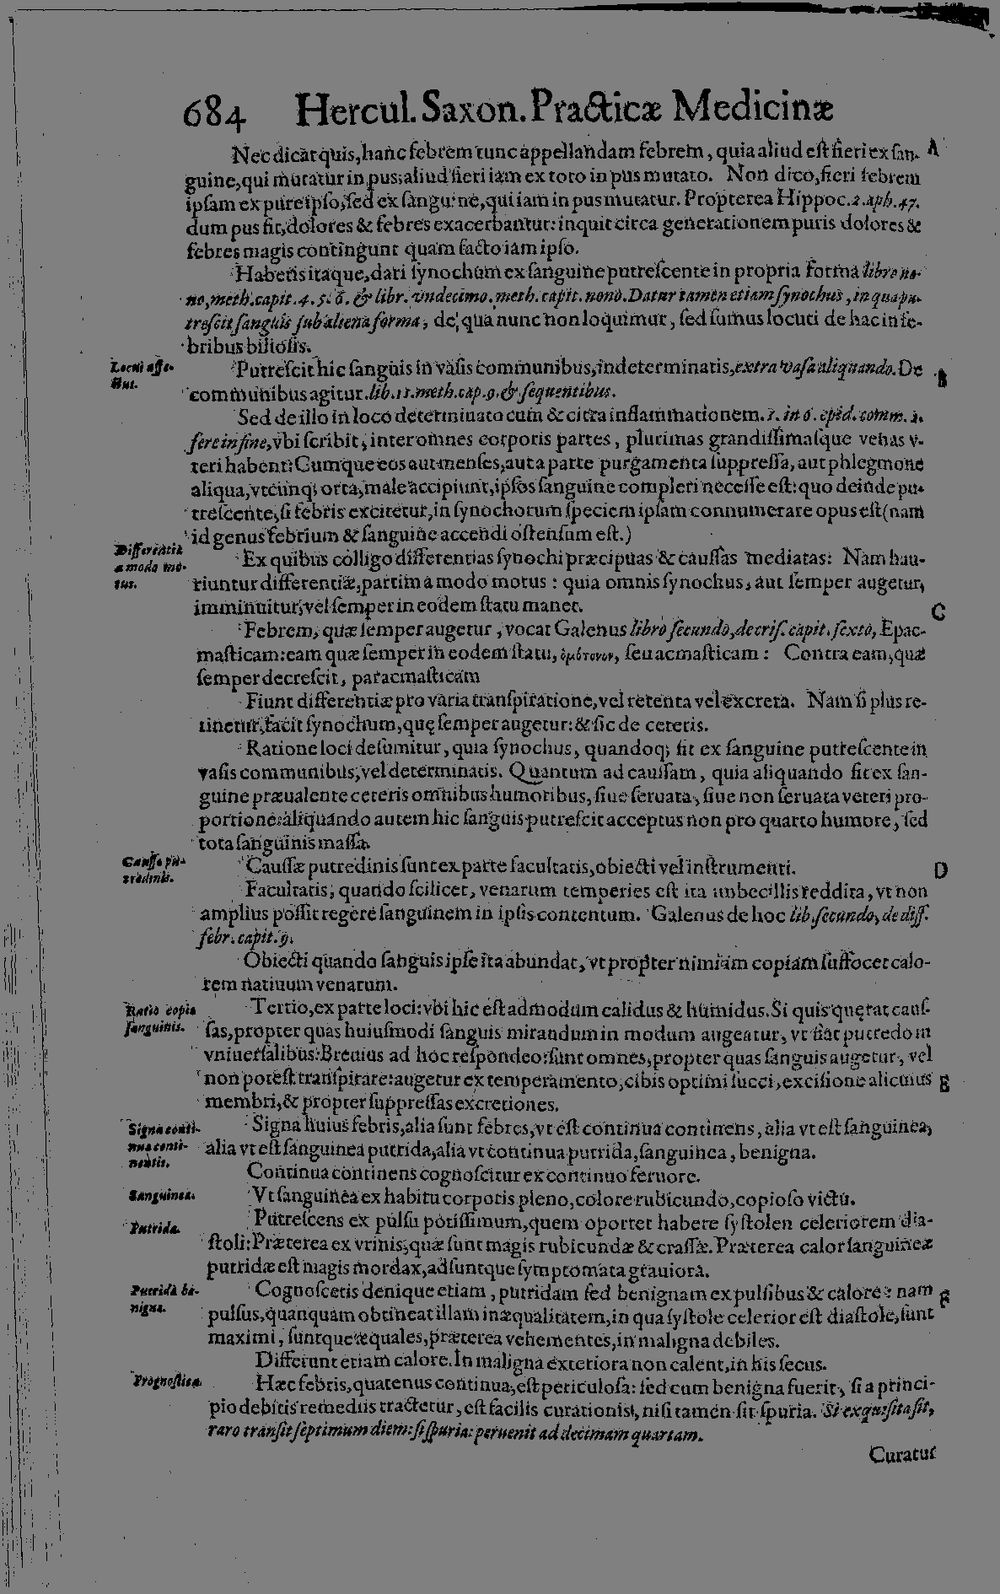 684 Hercul. Saxon. Practicæ Medicinæ
Nec dicat quis, hanc febrem tunc appellandam febrem, quia aliud est fieri ex san- A
guine, qui mutatur in pus; aliud fieri iam ex toto in pus mutato. Non dico, fieri febrem
ipsam ex pure ipso, sed ex sanguine, qui iam in pus mutatur. Propterea Hippoc. 2. aph. 47.
dum pus fit, dolores & febres exacerbantur: inquit circa generationem puris dolores &
febres magis contingunt quam facto iam ipso.
Habetis itaque, dari synochum ex sanguine putrescente in propria forma libro no-
no, meth. capit. 4. 5. 6. & libr. vndecimo. meth. capit. nono. Datur tamen etiam synochus, in qua pu-
trescit sanguis sub aliena forma, de qua nunc non loquimur, sed sumus locuti de hac in fe-
bribus biliosis.
Locus affe-
ctus.
Putrescit hic sanguis in vasis communibus, indeterminatis, extra vasa aliquando. De B
communibus agitur. lib. 11. meth. cap. 9. & sequentibus.
Sed de illo in loco determinato cum & citra inflammationem. 1. in 6. epid. comm. 2.
fere in fine, vbi scribit, inter omnes corporis partes, plurimas grandissimasque venas v-
teri habent: Cumque eos aut menses, aut a parte purgamenta suppressa, aut phlegmone
aliqua, vtcunq; orta, male accipiunt, ipsos sanguine compleri necesse est: quo deinde pu-
trescente, si febris excitetur, in synochorum speciem ipsam connumerare opus est (nam
id genus febrium & sanguine accendi ostensum est.)
Differentiæ
a modo mo-
tus.
Ex quibus colligo differentias synochi præcipuas & caussas mediatas: Nam hau-
riuntur differentiæ, partim à modo motus: quia omnis synochus, aut semper augetur,
imminuitur, vel semper in eodem statu manet. C
Febrem, quæ semper augetur, vocat Galenus libro secundo, de cris. capit. sexto, Epac-
masticam: eam quæ semper in eodem statu, ὁμότονον, seu acmasticam: Contra eam, quæ
semper decrescit, paracmasticam
Fiunt differentiæ pro varia transpiratione, vel retenta vel excreta. Nam si plus re-
tinetur, facit synochum, quę semper augetur: & sic de ceteris.
Ratione loci desumitur, quia synochus, quandoq; fit ex sanguine putrescente in
vasis communibus, vel determinatis. Quantum ad caussam, quia aliquando fit ex san-
guine præualente ceteris omnibus humoribus, siue seruata, siue non seruata veteri pro-
portione: aliquando autem hic sanguis putrescit acceptus non pro quarto humore, sed
tota sanguinis massa.
Caussæ pu-
tredinis.
Caussæ putredinis sunt ex parte facultatis, obiecti vel instrumenti. D
Facultatis, quando scilicet, venarum temperies est ita imbecillis reddita, vt non
amplius possit regere sanguinem in ipsis contentum. Galenus de hoc lib. secundo, de diff.
febr. capit. 9.
Obiecti quando sanguis ipse ita abundat, vt propter nimiam copiam suffocet calo-
rem natiuum venarum.
Ratio copiæ
sanguinis.
Tertio, ex parte loci: vbi hic est admodum calidus & humidus. Si quis quęrat caus-
sas, propter quas huiusmodi sanguis mirandum in modum augeatur, vt fiat putredo in
vniuersalibus: Breuius ad hoc respondeo: sunt omnes, propter quas sanguis augetur, vel
non potest transpirare: augetur ex temperamento, cibis optimi succi, excisione alicuius E
membri, & propter suppressas excretiones.
Signa conti-
nua conti-
nentis.
Signa huius febris, alia sunt febres, vt est continua continens, alia vt est sanguinea,
alia vt est sanguinea putrida, alia vt continua putrida, sanguinea, benigna.
Continua continens cognoscitur ex continuo feruore.
Sanguinea.
Vt sanguinea ex habitu corporis pleno, colore rubicundo, copioso victu.
Putrida.
Putrescens ex pulsu potissimum, quem oportet habere systolen celeriorem dia-
stoli: Præterea ex vrinis, quæ sunt magis rubicundæ & crassæ. Præterea calor sanguineæ
putridæ est magis mordax, adsuntque symptomata grauiora.
Putrida be-
nigna.
Cognoscetis denique etiam, putridam sed benignam ex pulsibus & calore: nam
pulsus, quanquam obtineat illam inæqualitatem, in qua systole celerior est diastole, sunt
maximi, suntque æquales, præterea vehementes, in maligna debiles.
Differunt etiam calore. In maligna exteriora non calent, in his secus.
Prognostica.
Hæc febris, quatenus continua, est periculosa: sed cum benigna fuerit, si a princi-
pio debitis remediis tractetur, est facilis curationis, nisi tamen sit spuria. Si exquisita sit,
raro transit septimum diem: si spuria: peruenit ad decimam quartam.
Curatur